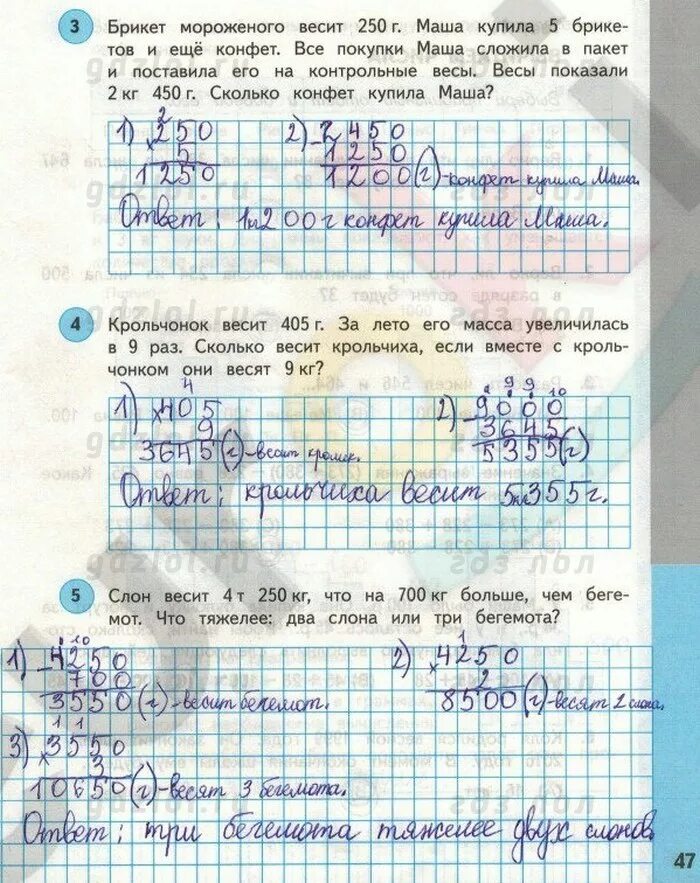 3
Брикет мороженого весит 250 г. Маша купила 5 брике-
тов и ещё конфет. Все покупки Маша сложила в пакет
и поставила его на контрольные весы. Весы показали
2 кг 450 г. Сколько конфет купила Маша?
2
1) 250 2) 2450
× 5 - 1250
1250 1200 (г) - конфет купила Маша.
Ответ: 1кг200г конфет купила Маша.
4
Крольчонок весит 405 г. За лето его масса увеличилась
в 9 раз. Сколько весит крольчиха, если вместе с кроль-
чонком они весят 9 кг?
4 9 9 10
1) ×405 2) -9000
9 3645
3645 (г) - весит кролик. 5355 (г)
Ответ: крольчиха весит 5кг355г.
5
Слон весит 4 т 250 кг, что на 700 кг больше, чем беге-
мот. Что тяжелее: два слона или три бегемота?
10 1
1) -4250 2) ×4250
700 2
3550 (г) - весит бегемот. 8500 (г) - весят 2 слона.
1 1
3) ×3550
3
10650 (г) - весят 3 бегемота.
Ответ: три бегемота тяжелее двух слонов.
47
gdzlol.ru
гдз лол